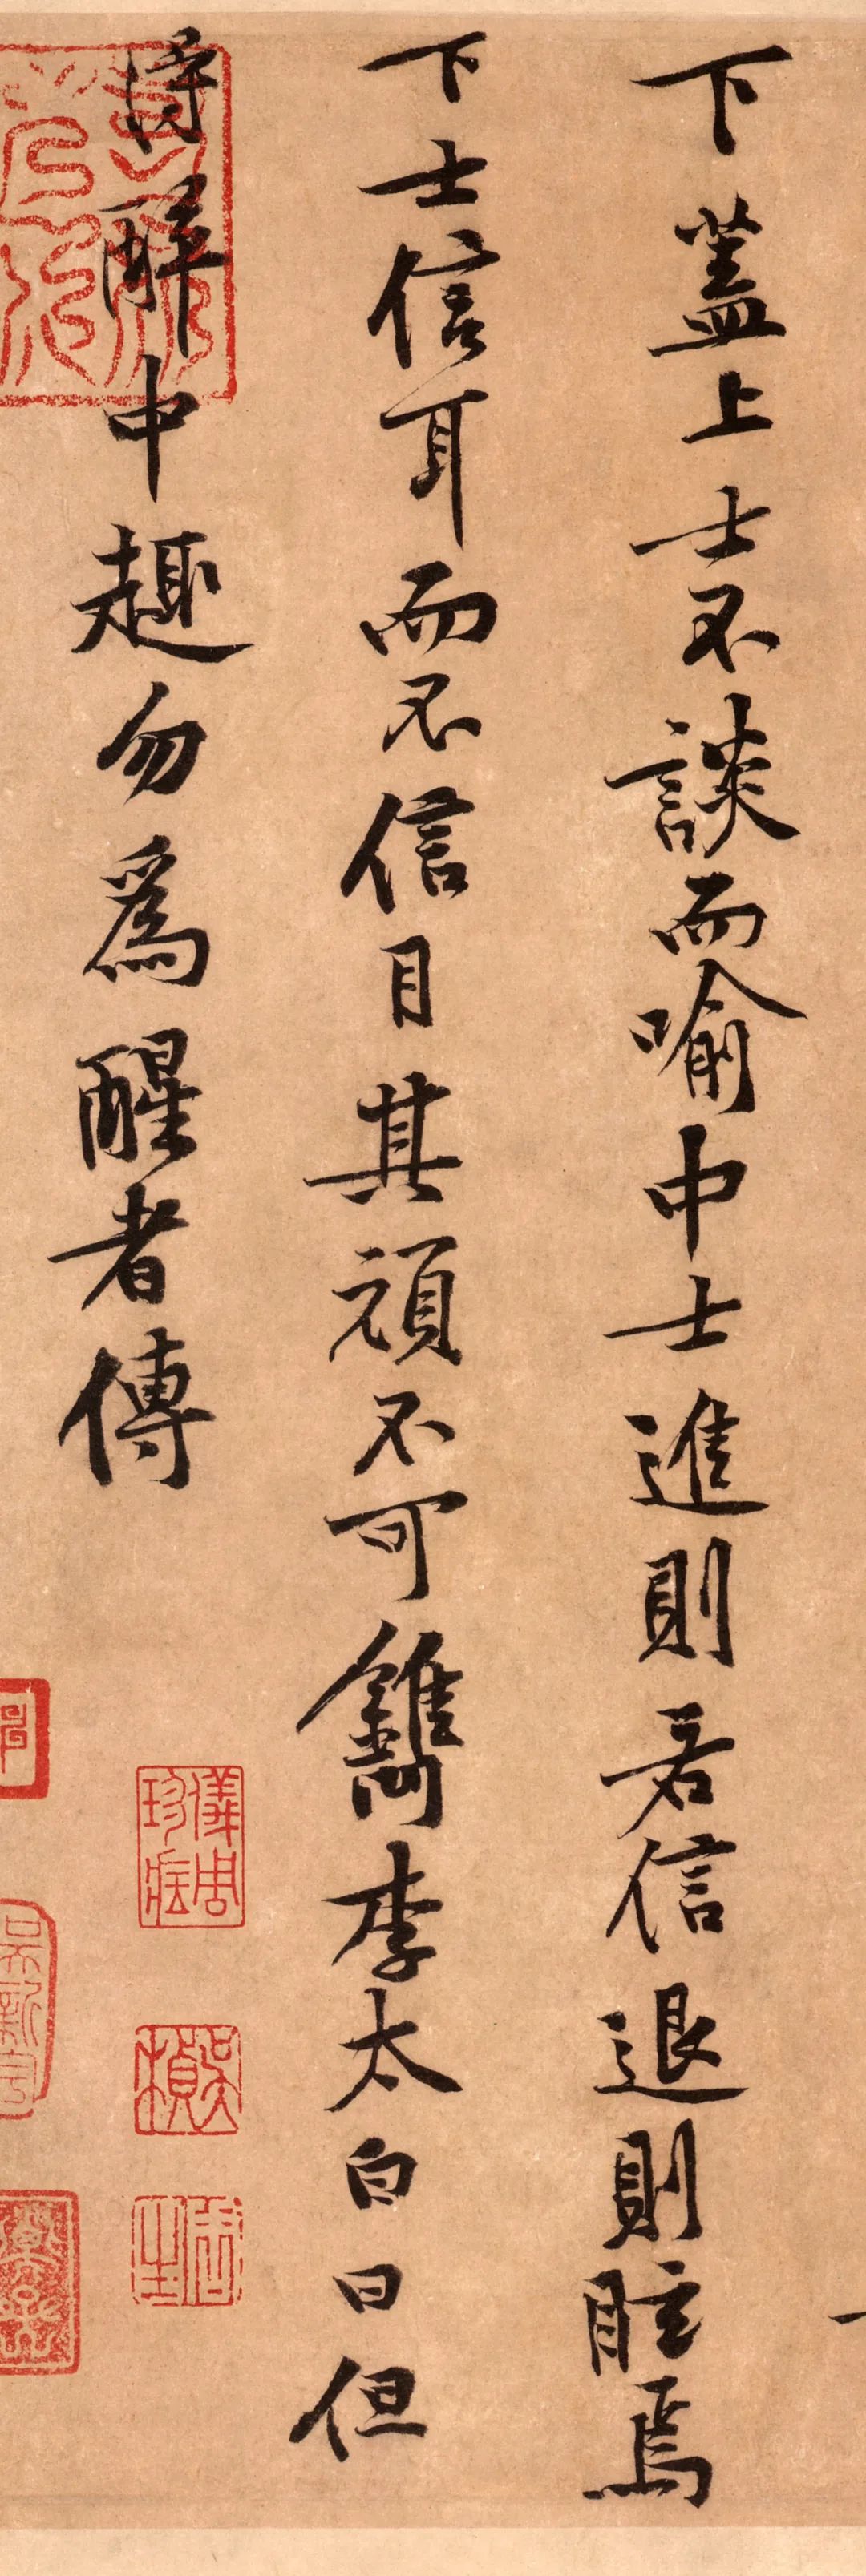 下蓋上士不談而喻中士進則若信退則眩焉
下士信耳而不信目其頑不可鐫李太白曰但
得醉中趣勿爲醒者傳
儀周珍藏
吳楨